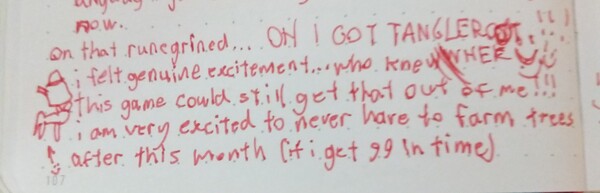 now.
on that runegrined... OH I GOT TANGLEROOT!!!
i felt genuine excitement... who knew WHER
this game could still get that out of me!!!
i am very excited to never have to farm trees
after this month (if i get 99 in time).
107